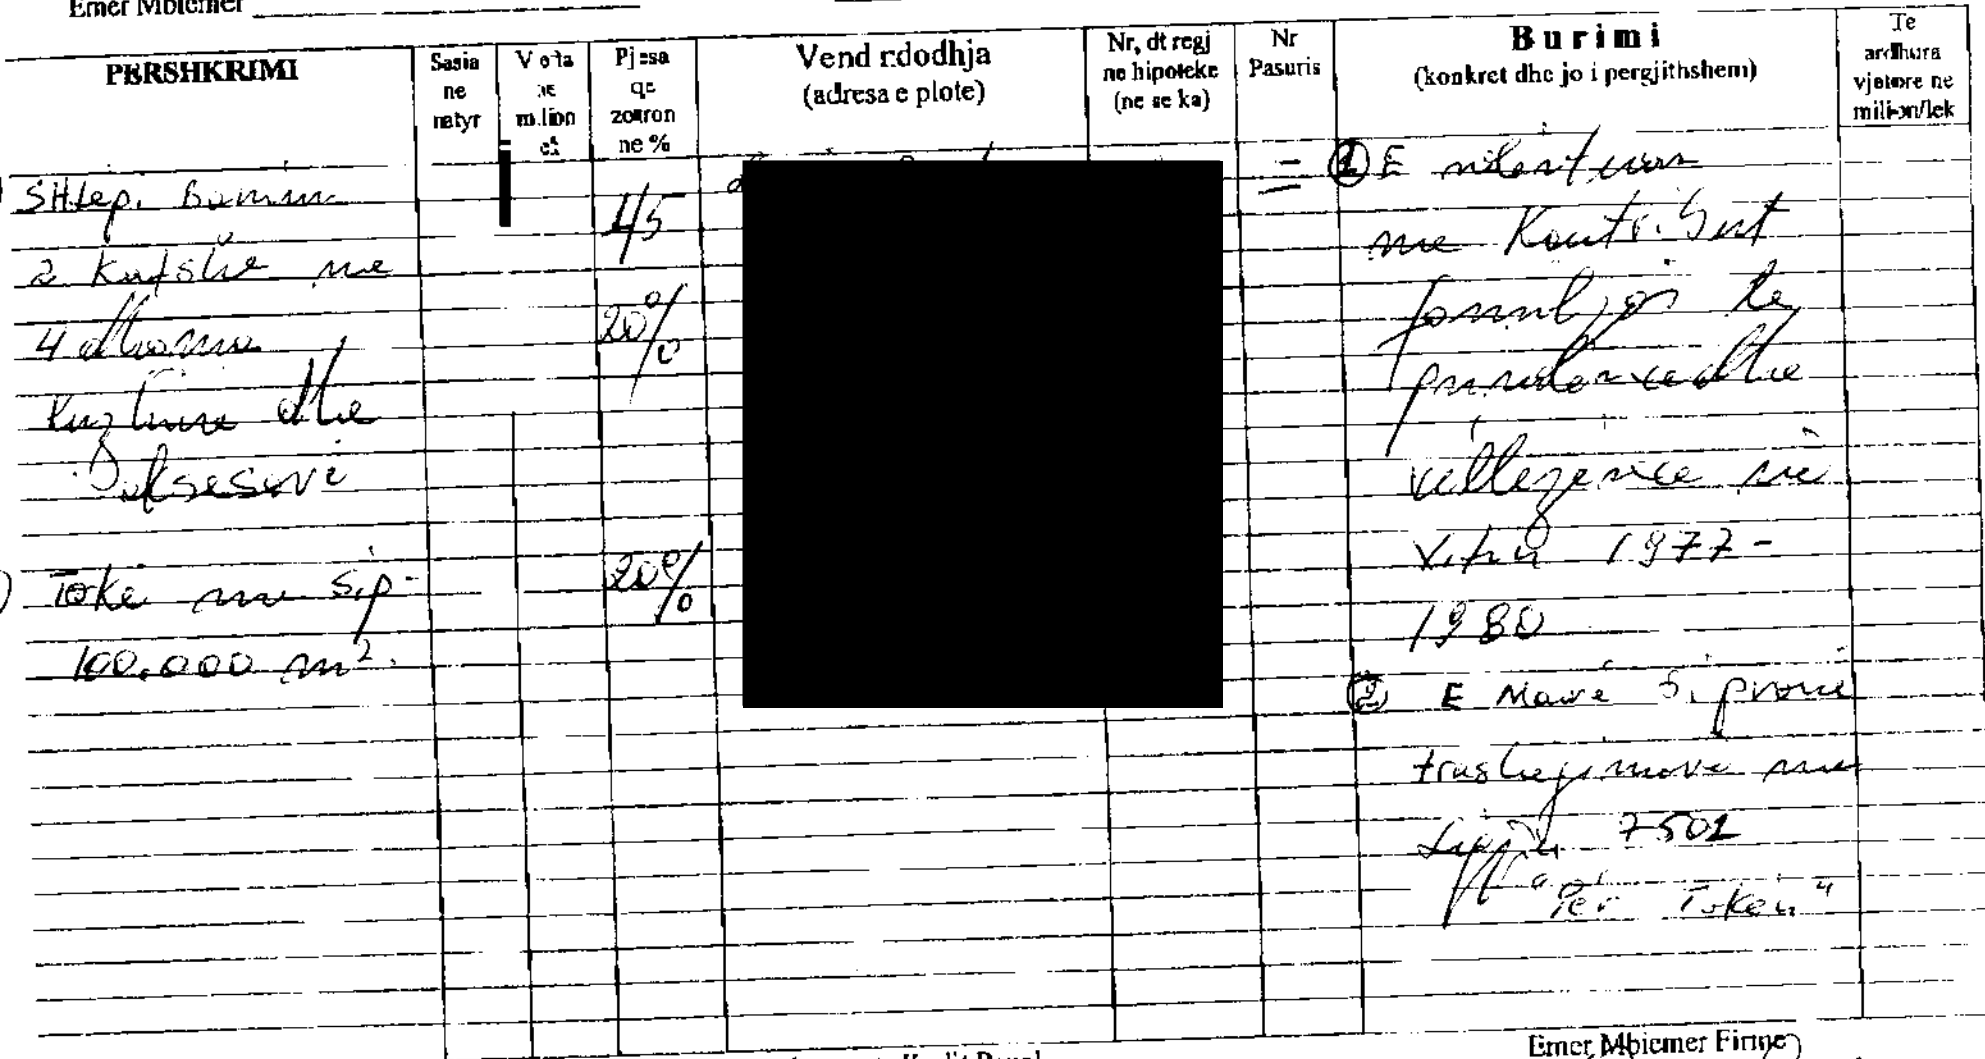 Emer Mbiemer
PERSHKRIMI
Sasia
ne
natyr
Vlota
ne
milion
lek
Pjesa
qe
zoteron
ne %
Vend ndodhja
(adresa e plote)
Nr, dt regj
ne hipoteke
(ne se ka)
Nr
Pasuris
Burimi
(konkret dhe jo i pergjithshem)
Te
ardhura
vjetore ne
milion/lek
SHtepi Banim
2 Katshe me
4 dhoma
kuzhine dhe
aksesore
1/5
20%
Toke me sip
100.000 m².
20%
=
① E ndertuar
me Kontribut
familjar te
prinderve dhe
vellezerve ne
Vitin 1977-
1980
② E Marrë Si pronë
trashegimore me
Ligjin 7501
"Per Token"
Emer Mbiemer Firme